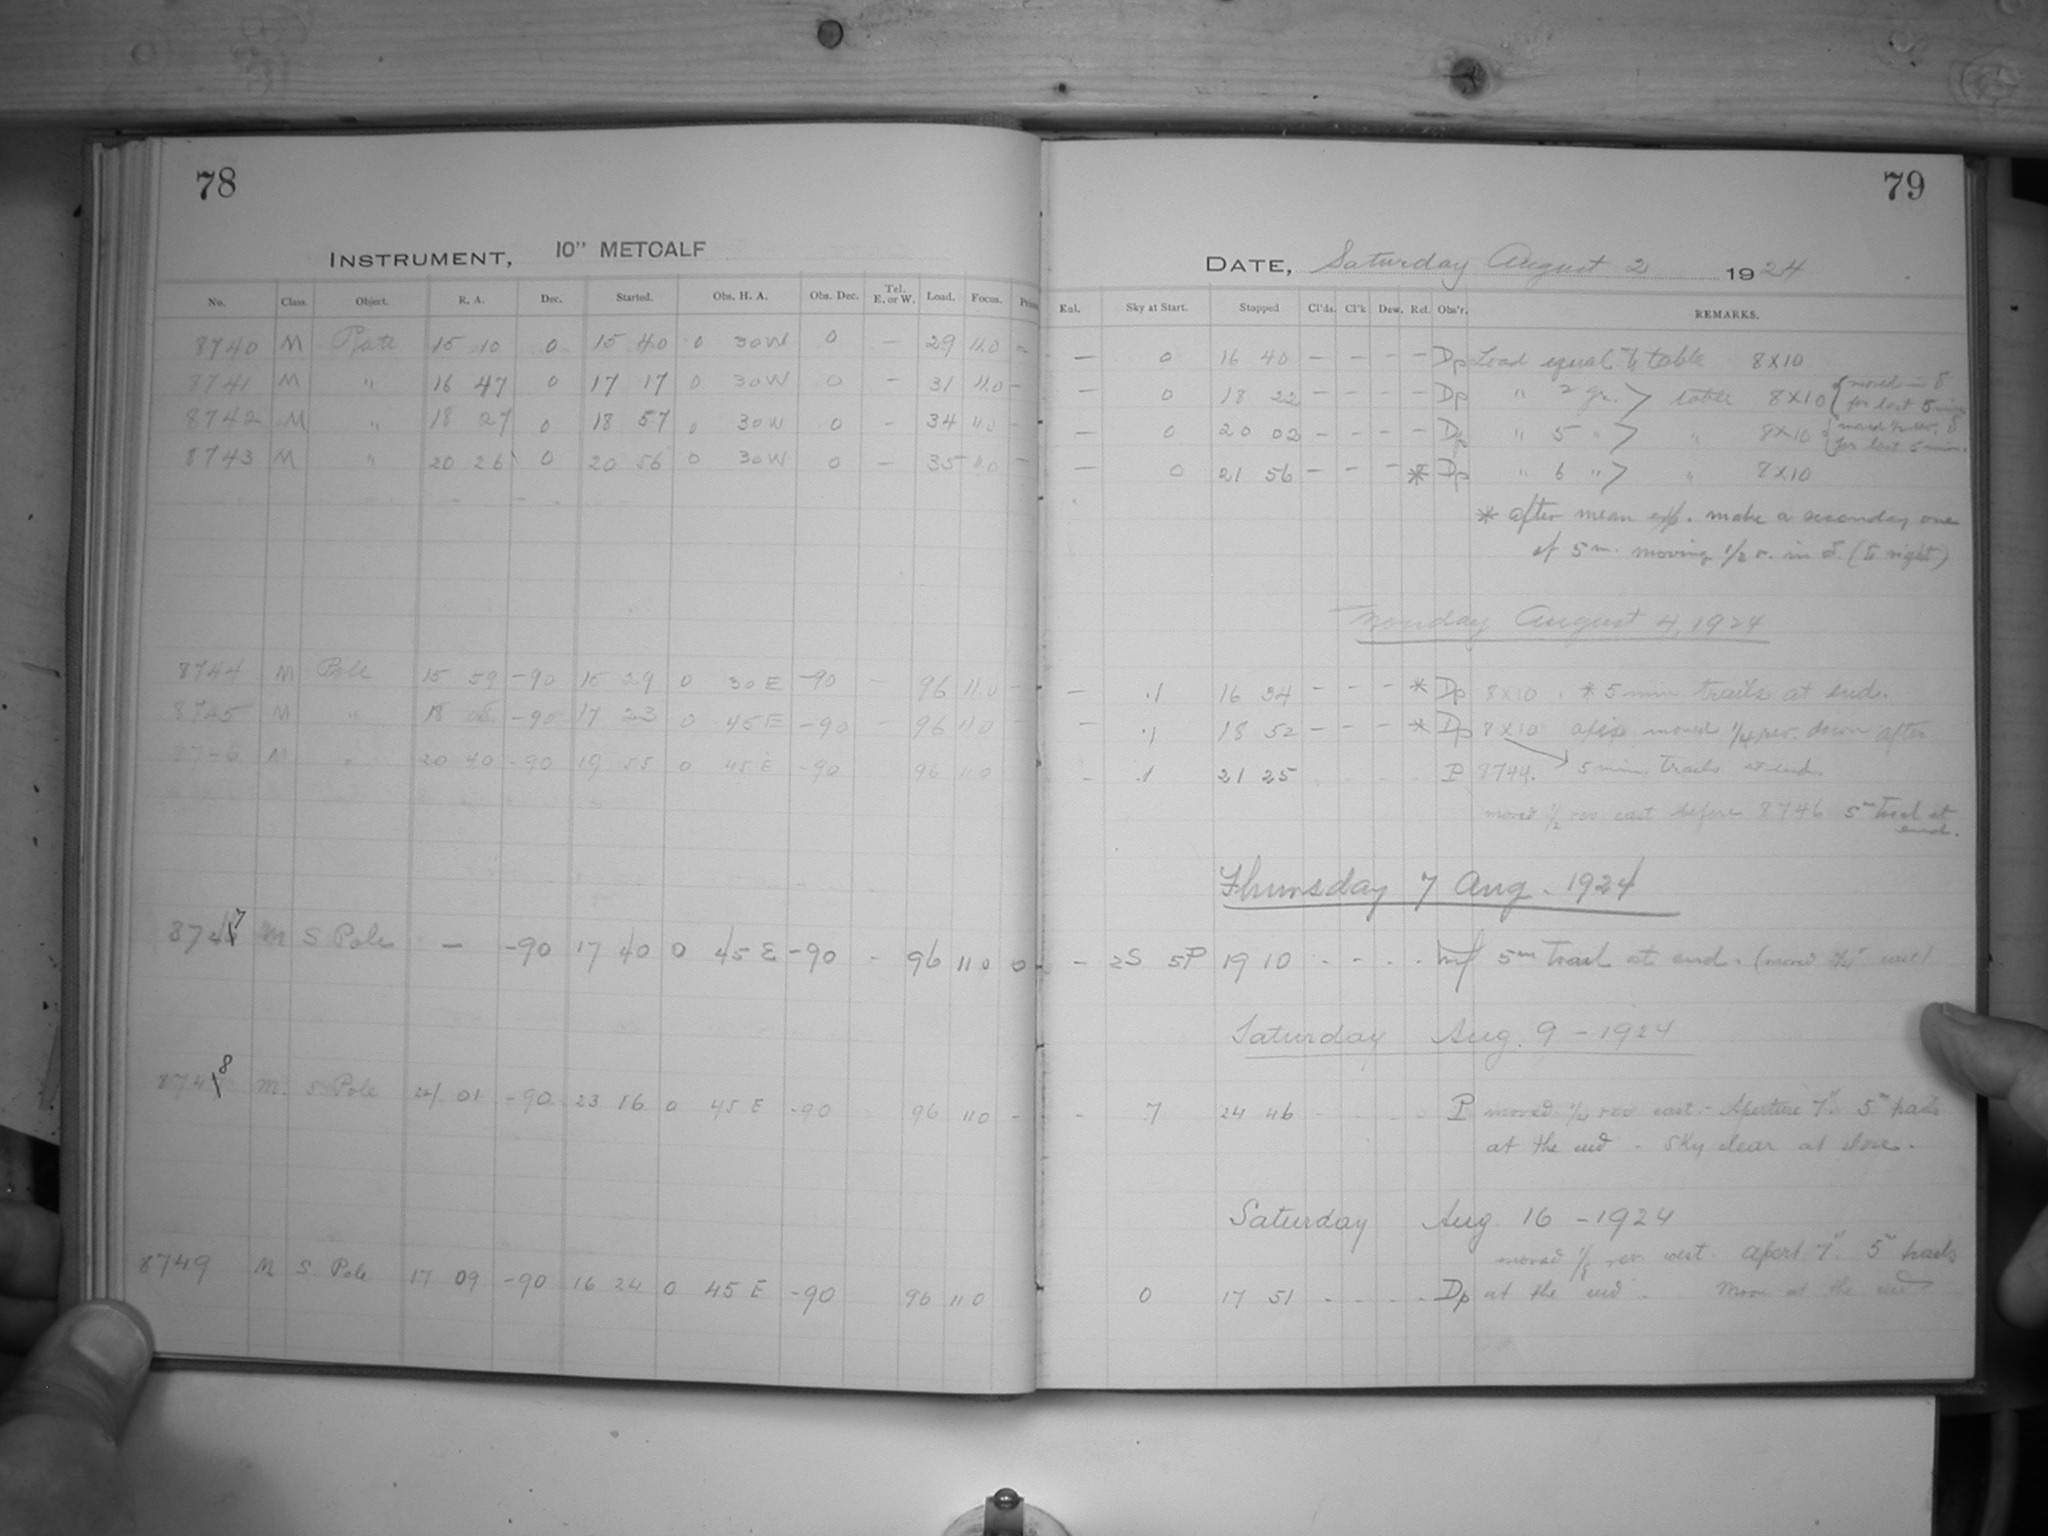 78
79
INSTRUMENT, 10" METCALF
DATE, Saturday August 2 1924
No. Class. Object. R. A. Dec. Started. Obs. H. A. Obs. Dec. Tel. E. or W. Load. Focus. Enl. Sky at Start. Stopped Cl'ds. Cl'k Dew. Ref. Obs'r. REMARKS.
8740 M 15 10 0 15 40 0 30W 0 — 29 11.0 — — 0 16 40 — — — — Dp Load equal table 8X10
8741 M " 16 47 0 17 17 0 30W 0 — 31 11.0 — — 0 18 22 — — — — Dp " 2 gr. } table 8X10 { moved in δ for last 5 min
8742 M " 18 27 0 18 57 0 30W 0 — 34 11.0 — — 0 20 02 — — — — Dp " 5 " } " 8X10 { moved δ for last 5 min.
8743 M " 20 26 0 20 56 0 30W 0 — 35 11.0 — — 0 21 56 — — — * Dp " 6 " } " 8X10
* after mean exp. make a seconday one
of 5 m. moving 1/2 r. in δ. (to right)
Monday August 4, 1924
8744 M Pole 15 59 -90 15 29 0 30 E -90 — 96 11.0 — — .1 16 34 — — — * Dp 8X10 . * 5 min trails at end.
8745 M " 18 -90 17 23 0 45 E -90 — 96 11.0 — — .1 18 52 — — — * Dp 8X10 moved 1/4 rev. down after
8746 M " 20 40 -90 19 55 0 45 E -90 96 11.0 - .1 21 25 P 8744. 5 min. trails at end.
moved 1/2 rev east before 8746 5m trail at
end.
Thursday 7 Aug. 1924
8747 M S Pole — -90 17 40 0 45 E -90 - 96 11 0 0 - 2S 5P 19 10 - - - - 5m trail at end. (moved west)
Saturday Aug. 9 - 1924
8748 M. S. Pole 24 01 -90 23 16 0 45 E -90 96 11.0 - - 7 24 46 P moved 1/4 rev east. - Aperture 7" 5m trails
at the end - Sky clear at close.
Saturday Aug 16 - 1924
moved rev west. apert 7" 5m trails
8749 M S. Pole 17 09 -90 16 24 0 45 E -90 96 11 0 0 17 51 - - - - Dp at the end. Moon at the end